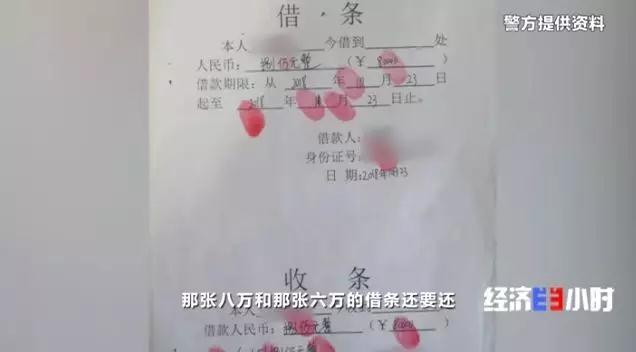 警方提供资料
借·条
本人 今借到 处
人民币：捌佰元整（¥ ）
借款期限：从 2018 年 月 23 日
起至 2018 年 月 23 日止。
借款人：
身份证号：
日 期：2018年 月23
收 条
那张八万和那张六万的借条还要还
经济半小时
借款人民币：捌佰元整（¥ ）